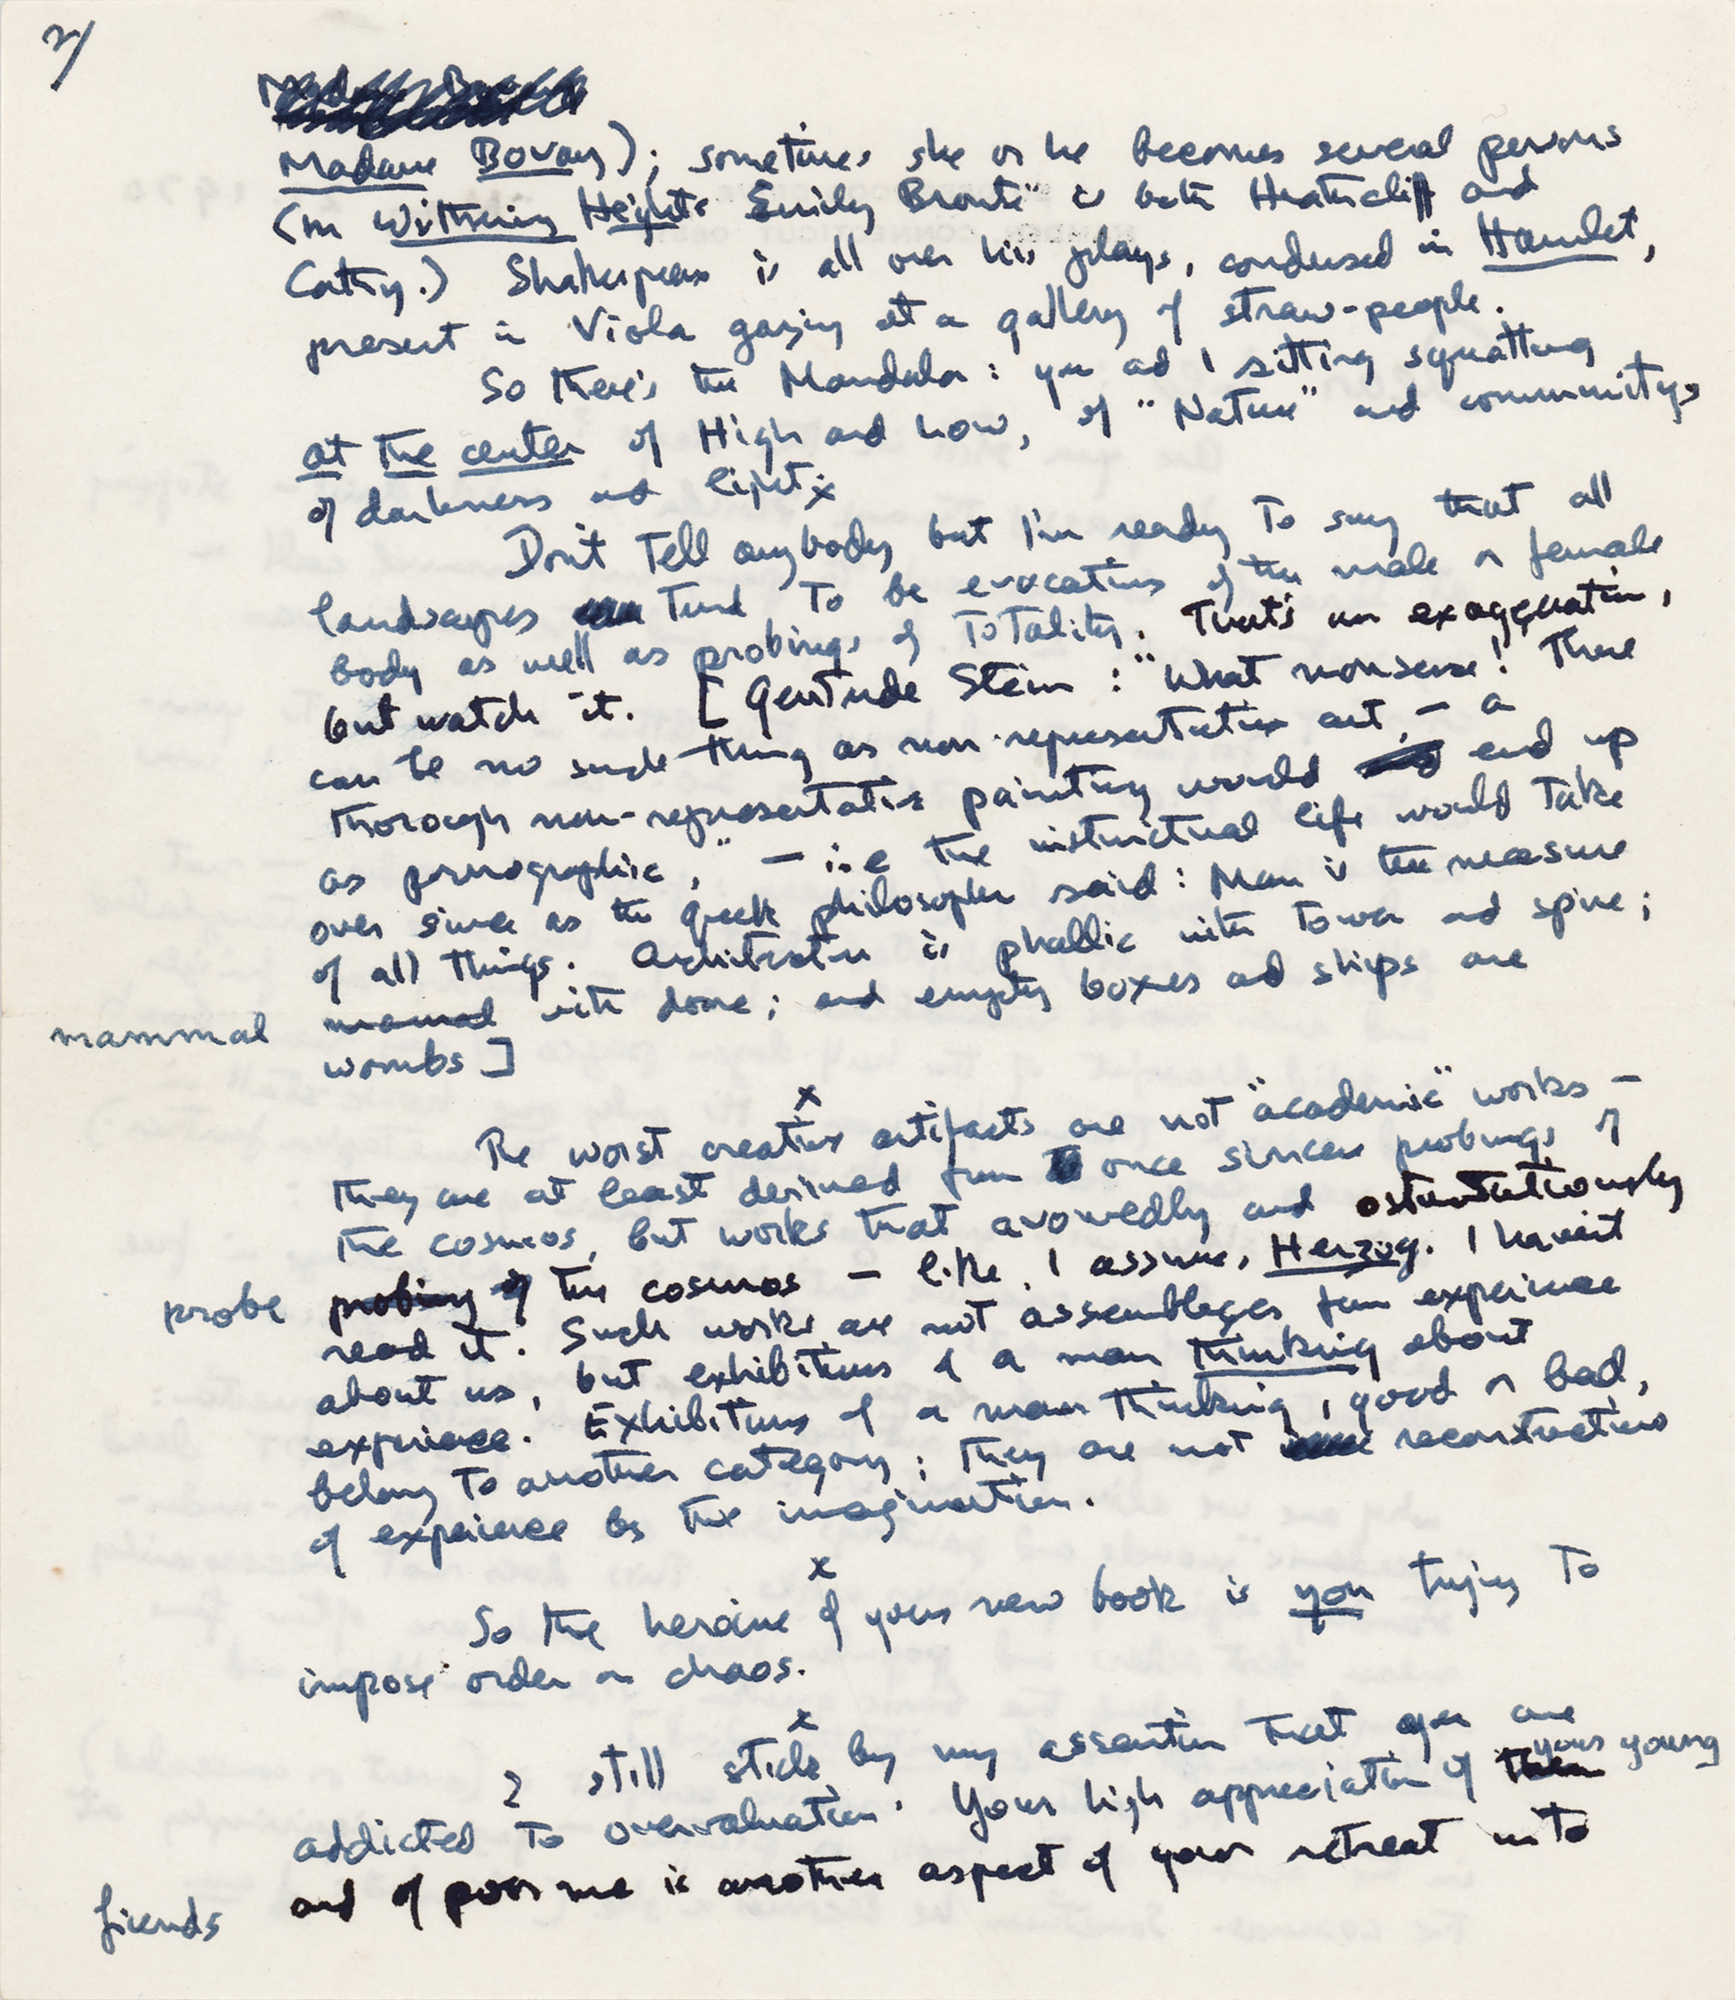 2/
Madame Bovary); sometimes she or he becomes several persons
(in Wuthering Heights Emily Brontë is both Heathcliff and
Cathy.) Shakespeare is all over his plays, condensed in Hamlet,
present in Viola gazing at a gallery of straw-people.
So there's the Mandala: you and I sitting squatting
at the center of High and Low, of "Nature" and community,
of darkness and light.
x
Don't tell anybody but I'm ready to say that all
landscapes tend to be evocations of the male or female
body as well as probings of Totality. That's an exaggeration,
but watch it. [Gertrude Stein: "What nonsense! There
can be no such thing as non-representative art – a
thorough non-representative painting would end up
as pornographic," – i.e. the instinctual life would take
over since as the Greek philosopher said: Man is the measure
of all things. Architecture is phallic with tower and spire;
mammal mamal with dome; and empty boxes and ships are
wombs]
x
The worst creative artifacts are not "academic" works –
they are at least derived from once sincere probings of
the cosmos, but works that avowedly and ostentatiously
probe probing of the cosmos – like, I assume, Herzog. I haven't
read it. Such works are not assemblages from experience
about us, but exhibitions of a man thinking about
experience. Exhibitions of a man thinking, good or bad,
belong to another category; they are not reconstructions
of experience by the imagination.
x
So the heroine of your new book is you trying to
impose order on chaos.
x
I still stick by my assertion that you are
addicted to overvaluation. Your high appreciation of them your young
friends and of poor me is another aspect of your retreat into